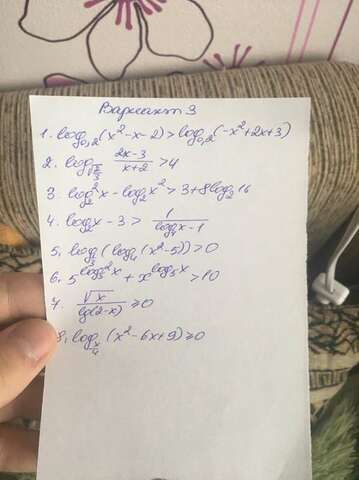 Вариант 3
1. log₀,₂(x²-x-2)>log₀,₂(-x²+2x+3)
2. log_{√2/3} (2x-3)/(x+2) >4
3. log₂²x-log₂x²>3+8log₂16
4. log₂x-3> 1/(log₄x-1)
5. log_{1/3}(log₄(x²-5))>0
6. 5^{log₅²x}+x^{log₅x}>10
7. √x/lg(2-x) ≥0
8. log_{x/4}(x²-6x+9)≥0